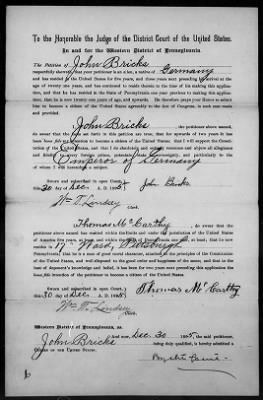 To the Honorable the Judge of the District Court of the United States.
In and for the Western District of Pennsylvania.
The Petition of John Bricks
respectfully sheweth, that your petitioner is an alien, a native of Germany
and has resided in the United States for five years, and three years next preceding his arrival at the
age of twenty one years, and has continued to reside therein to the time of making this application;
and that he has resided in the State of Pennsylvania one year previous to making this
application; that he is now twenty one years of age and upwards. He therefore prays your Honor to admit
him to become a citizen of the United States agreeably to the Act of Congress, in such case made and
provided.
John Bricks, the petitioner above named,
do swear that the facts set forth in this petition are true, that for upwards of two years it has
been my intention to become a citizen of the United States, that I will support the Constitution
of the United States, and that I do absolutely and entirely renounce and abjure all allegiance
and fidelity to every foreign prince, potentate, state or sovereignty, and particularly to
Emperor of Germany
of whom I was before a subject.
Sworn and subscribed in open Court,
this 30 day of Dec A. D. 18
John Bricks
Wm T. Lindsey
Clerk.
Thomas McCarthy, do swear that the
petitioner above named has resided within the limits and under the jurisdiction of the United States
of America five years, at least, and that
he resides in 17th Ward, Pittsburgh
Pennsylvania; that he is a man of good moral character, attached to the principles of the Constitution
of the United States, and well disposed to the good order and happiness of the same, and that to the
best of deponent's knowledge and belief, it has been for two years next preceding this application
the intention of the petitioner to become a citizen of the United States.
Sworn and subscribed in open Court,
this 30 day of Dec. A. D. 18
Thomas McCarthy
Wm T. Lindsey
Clerk.
Western District of Pennsylvania, ss.
And now, Dec. 30
John Bricks being duly qualified, is hereby admitted a
Citizen of the United States.
By the Court